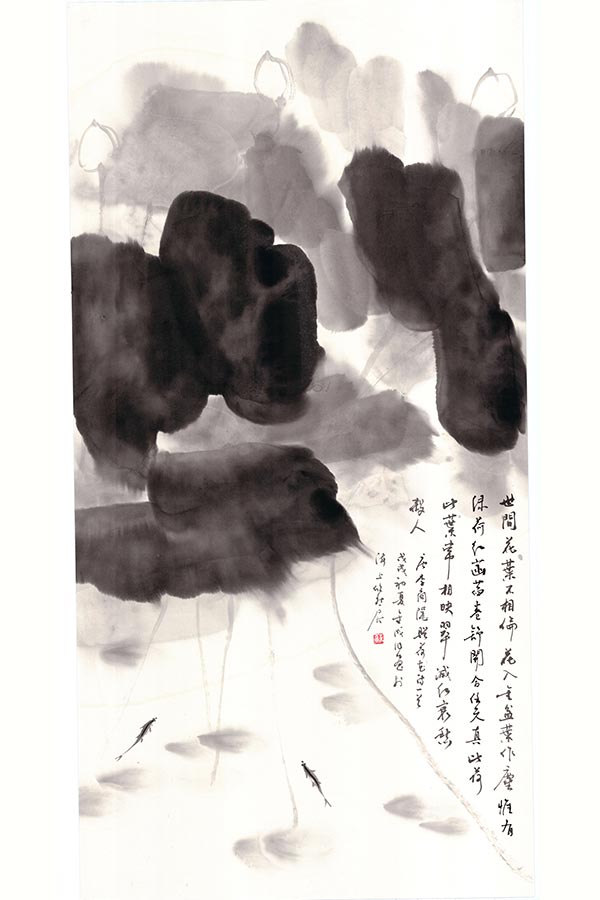 世間花葉不相倫花入金盆葉作塵惟有
绿荷红菡萏卷舒開合任天真此荷
此葉常相映翠減红衰愁
殺人
唐李商隐贈荷花诗一首
戊戌初夏
沪上